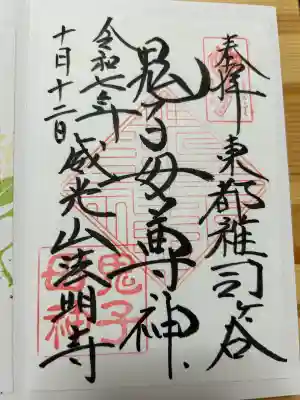 奉拝 東都雑司ヶ谷
鬼子母尊神
威光山法明寺
令和六年
十月十二日
鬼子
母神